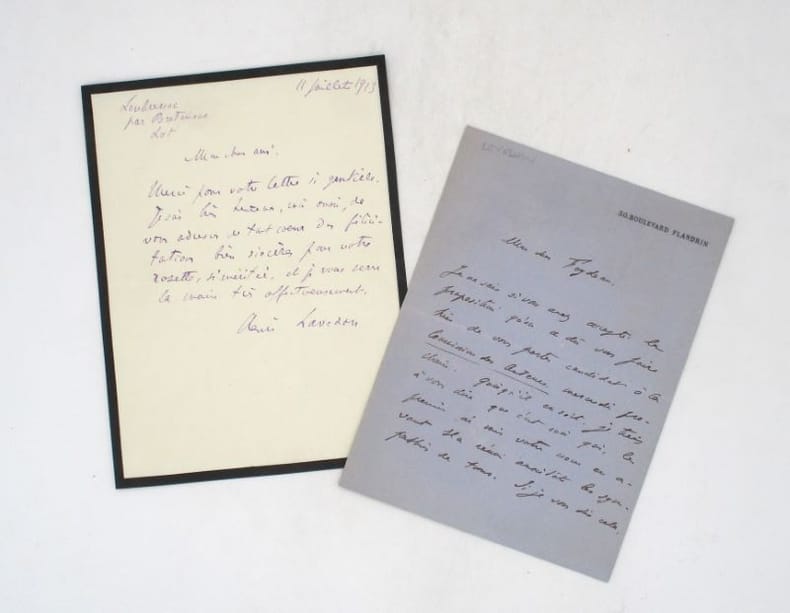 11 Juillet 1913
par Bretenoux
Lot
Mon cher ami,
Merci pour votre lettre si gentille.
Je suis très heureux, moi aussi, de
vous adresser de tout coeur des félici-
tations bien sincères pour votre
rosette, si méritée, et je vous serre
la main très affectueusement.
Henri Lavedan
30, BOULEVARD FLANDRIN
Mon cher
Je ne sais si vous avez accepté la
proposition qu'on a dû vous faire
de vous porter candidat à la
Commission des Auteurs mercredi pro-
chain. Quoiqu'il en soit, je tiens
à vous dire que c'est moi qui, le
premier ai mis votre nom en a-
vant et a réuni aussitôt les sym-
pathies de tous. Si je vous dis cela,